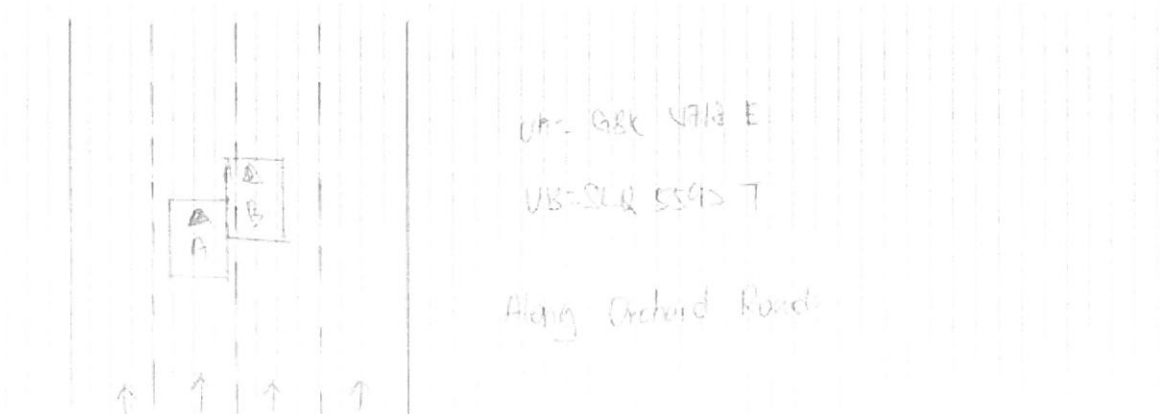 A
B
VA= GBK
VB=SLQ 5590 T
Along Orchard Road